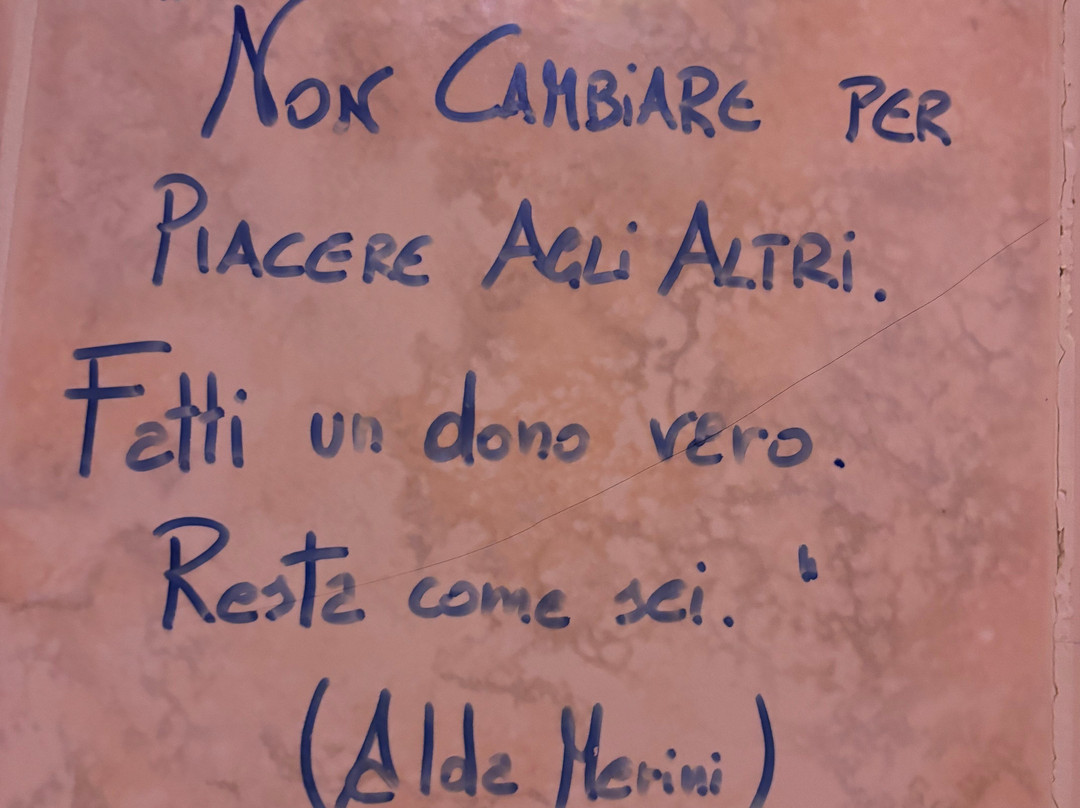 Non Cambiare per
Piacere Agli Altri.
Fatti un dono vero.
Resta come sei. "
(Alda Merini)